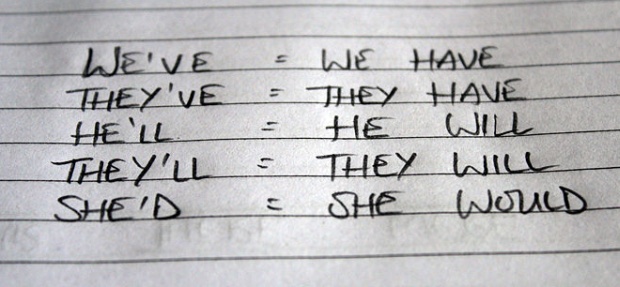 WE'VE = WE HAVE
THEY'VE = THEY HAVE
HE'LL = HE WILL
THEY'LL = THEY WILL
SHE'D = SHE WOULD